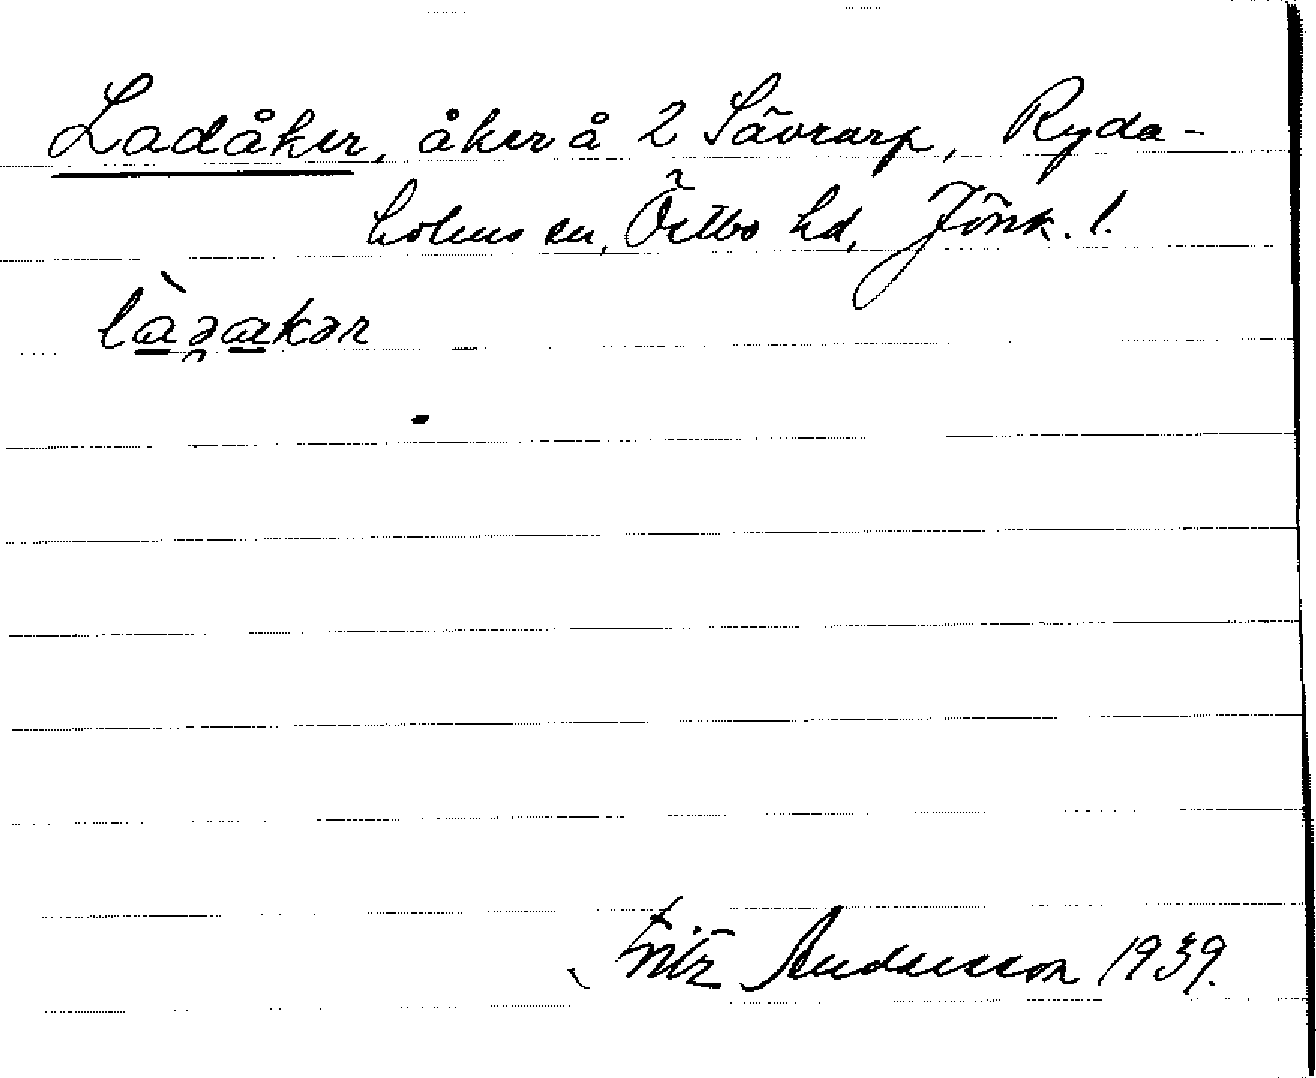 Ladåker, åker å 2 Sävrarp, Ryda-
holms sn, Östbo hd, Jönk. l.
là̱ə̯a̱kər
Fritz Andersson 1939.